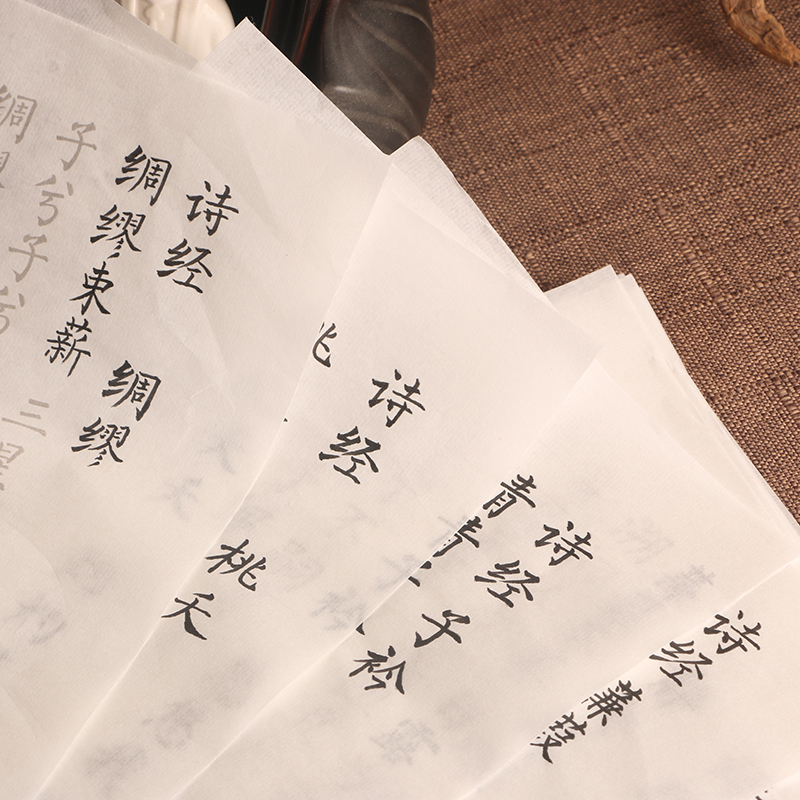 诗经 绸缪
绸缪束薪 三星
子兮子兮
绸
诗经 桃夭
桃
诗经 子衿
青青子
诗经 蒹葭